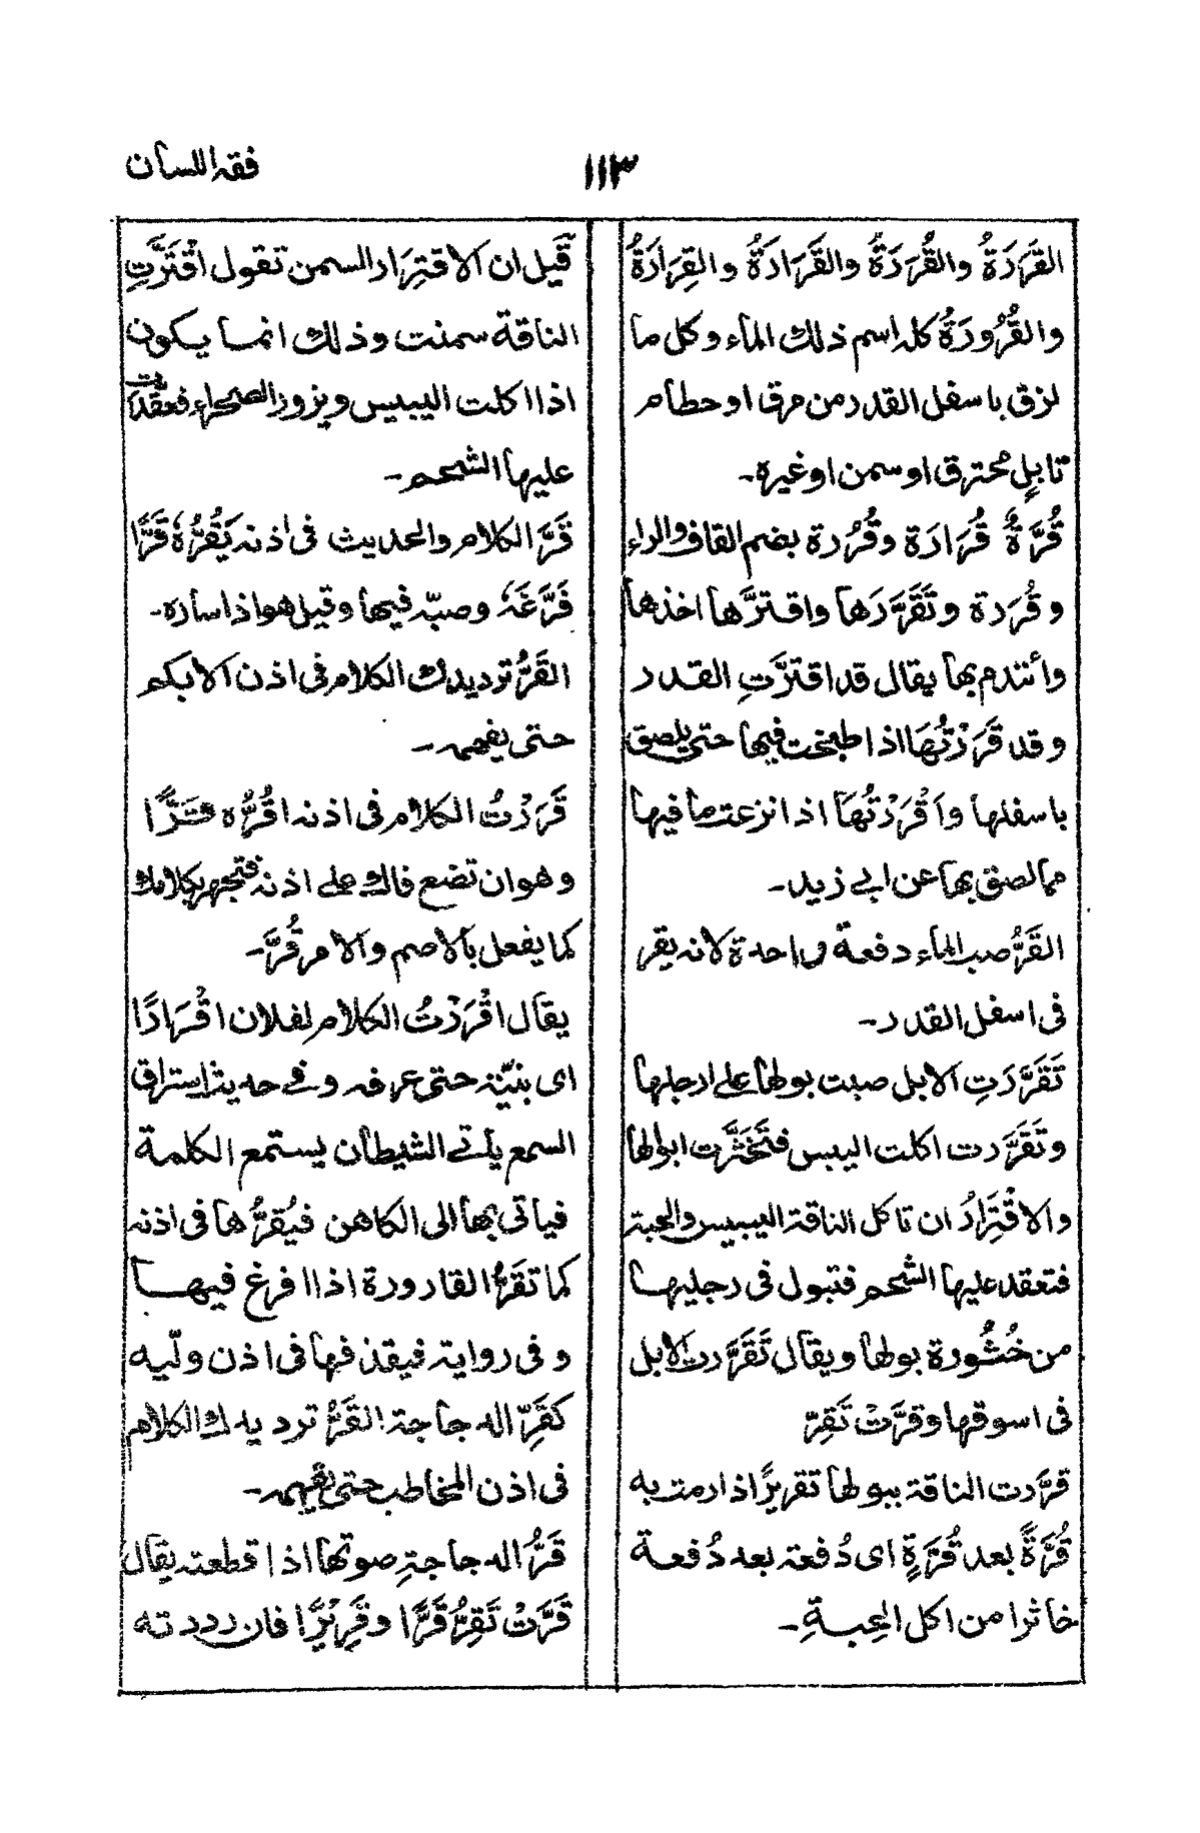 فقه اللسان
١١٣
القَرَرَةُ والقُرَرَةُ والقَرَارَةُ والقِرَارَةُ
والقُرُورَةُ كله اسم ذلك الماء وكل ما
لزق باسفل القدر من مرق او حطام
تابلٍ محترق او سمن او غيره۔
قُرَّةٌ قُرَارَة وقُرُرة بضم القاف والراء
وقُرَرة وتَقَرَّرَها واقترَّها اخذها
وائتدم بها يقال قد اقترَّتِ القدر
وقد قَرَرْتُهَا اذا طبخت فيها حتى يلصق
باسفلها واَقْرَرْتُهَا اذا نزعت ما فيها
مما لصق بها عن ابي زيد۔
القَرُّ صب الماء دفعة واحدة لانه يقر
فى اسفل القدر۔
تَقَرَّرَتِ الابل صبت بولها على ارجلها
وتَقَرَّرت اكلت اليبس فتَخَثَّرت ابوالها
والاقْتِرَارُ ان تاكل الناقة اليبيس والحبة
فتعقد عليها الشحم فتبول فى رجليها
من خُثُورة بولها ويقال تَقَرَّرت الابل
فى اسوقها وقرَّتْ تَقِرّ
قرَّرت الناقة ببولها تقريرًا اذا رمت به
قُرَّةً بعد قُرَّةٍ اى دُفعة بعد دُفعة
خاثرا من اكل الحِبةِ۔
قِيل ان الاقتِرَار السمن تقول اقْتَرَّتِ
الناقة سمنت وذلك انما يكون
اذا اكلت اليبيس وبزور الصحراء فعقدت
عليها الشحم۔
قَرَّ الكلام والحديث فى اذنه يَقُرُّهٗ قَرًّا
فَرَّغَهٗ وصبّه فيها وقيل هو اذا ساره۔
القَرُّ ترديدك الكلام فى اذن الابكم
حتى يفهمه۔
قَرَرْتُ الكلام فى اذنه اقُرُّه قَرًّا
وهو ان تضع فاك على اذنه فتجهر بكلامك
كما يفعل بالاصم والامر قُرَّ۔
يقال اقْرَرْتُ الكلام لفلان اقْرَارًا
اى بنيّنه حتى عرفه وفي حديث استراق
السمع يأتي الشيطان يستمع الكلمة
فياتى بها الى الكاهن فيُقرُّها فى اذنه
كما تقَرُّ القارورة اذا افرغ فيها
وفى رواية فيقذفها فى اذن ولّيه
كقَرِّ الدجاجة القَرُّ ترديدك الكلام
فى اذن المخاطب حتى يفهمه۔
قَرُّ الدجاجةِ صوتها اذا قطعته يقال
قَرَّتْ تَقِرُّ قَرًّا وقَرِيْرًا فان رددته